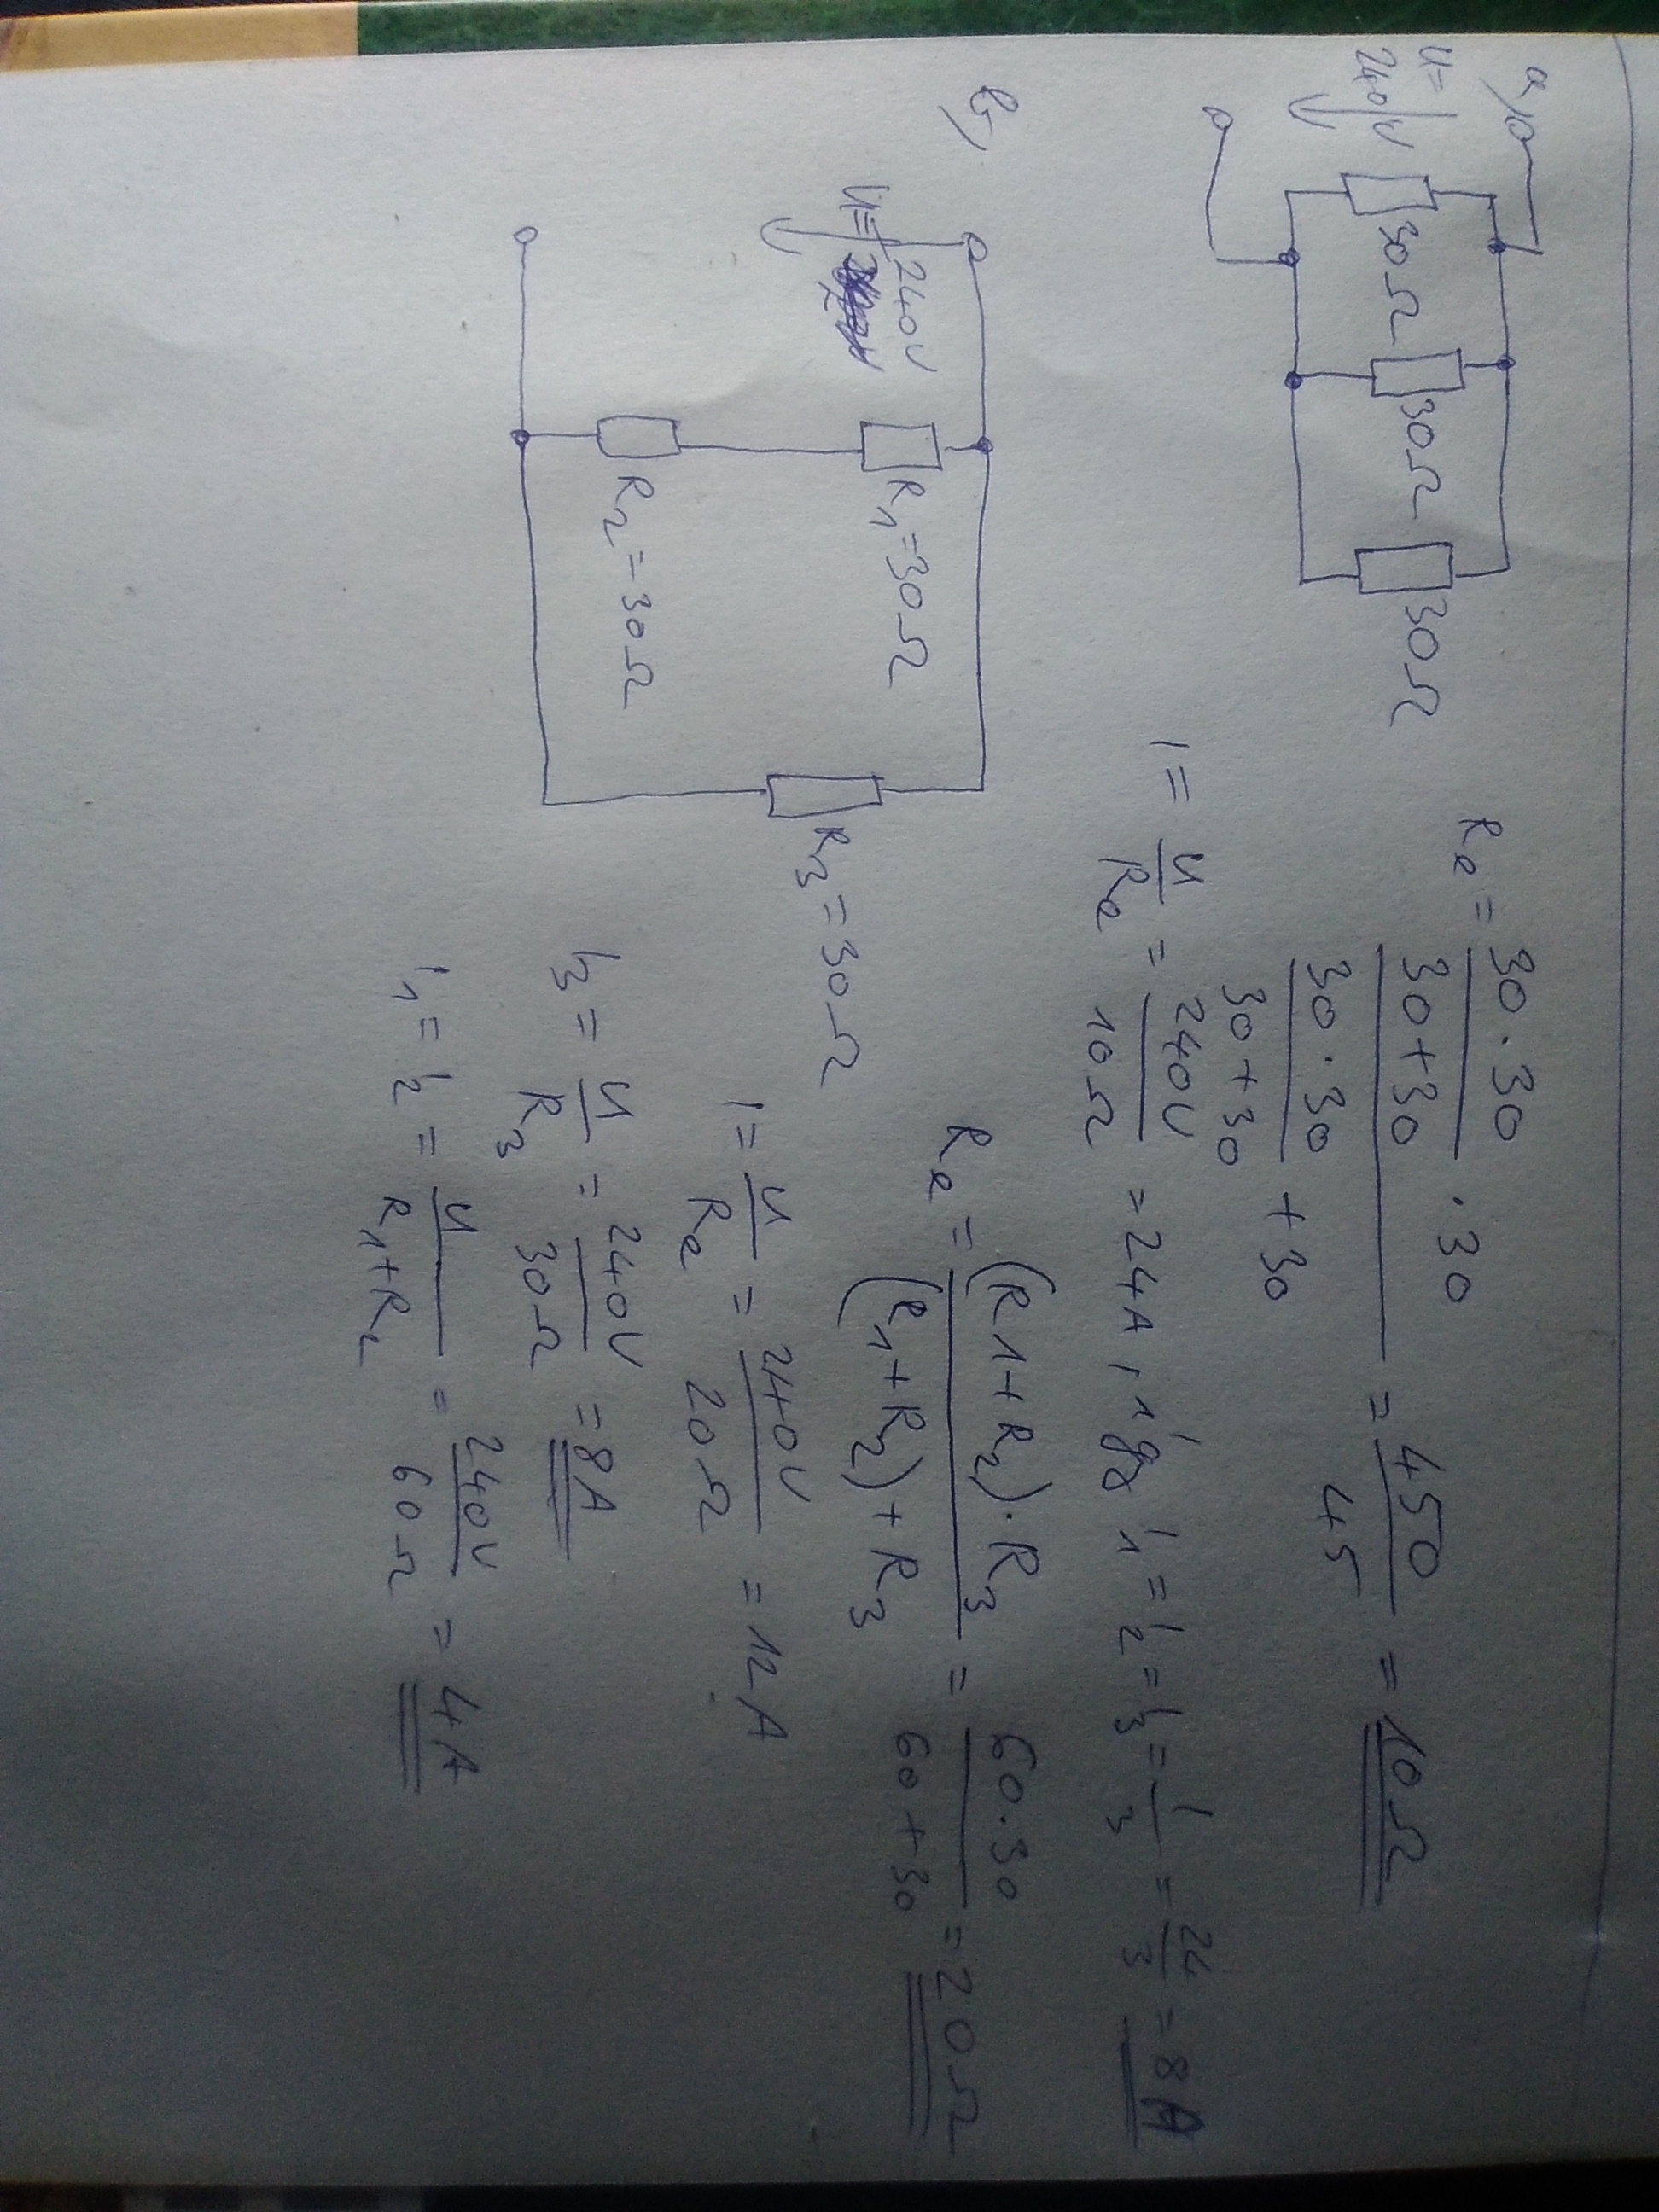 a,
U=
240V
30Ω 30Ω 30Ω
Re = 30·30/30+30 · 30 / 30·30/30+30 + 30 = 450/45 = 10Ω
I = U/Re = 240V/10Ω = 24A, így I1 = I2 = I3 = I/3 = 24/3 = 8A
b,
U= 240V
R1=30Ω
R2=30Ω
R3=30Ω
Re = (R1+R2)·R3/(R1+R2)+R3 = 60·30/60+30 = 20Ω
I = U/Re = 240V/20Ω = 12A
I3 = U/R3 = 240V/30Ω = 8A
I1 = I2 = U/R1+R2 = 240V/60Ω = 4A